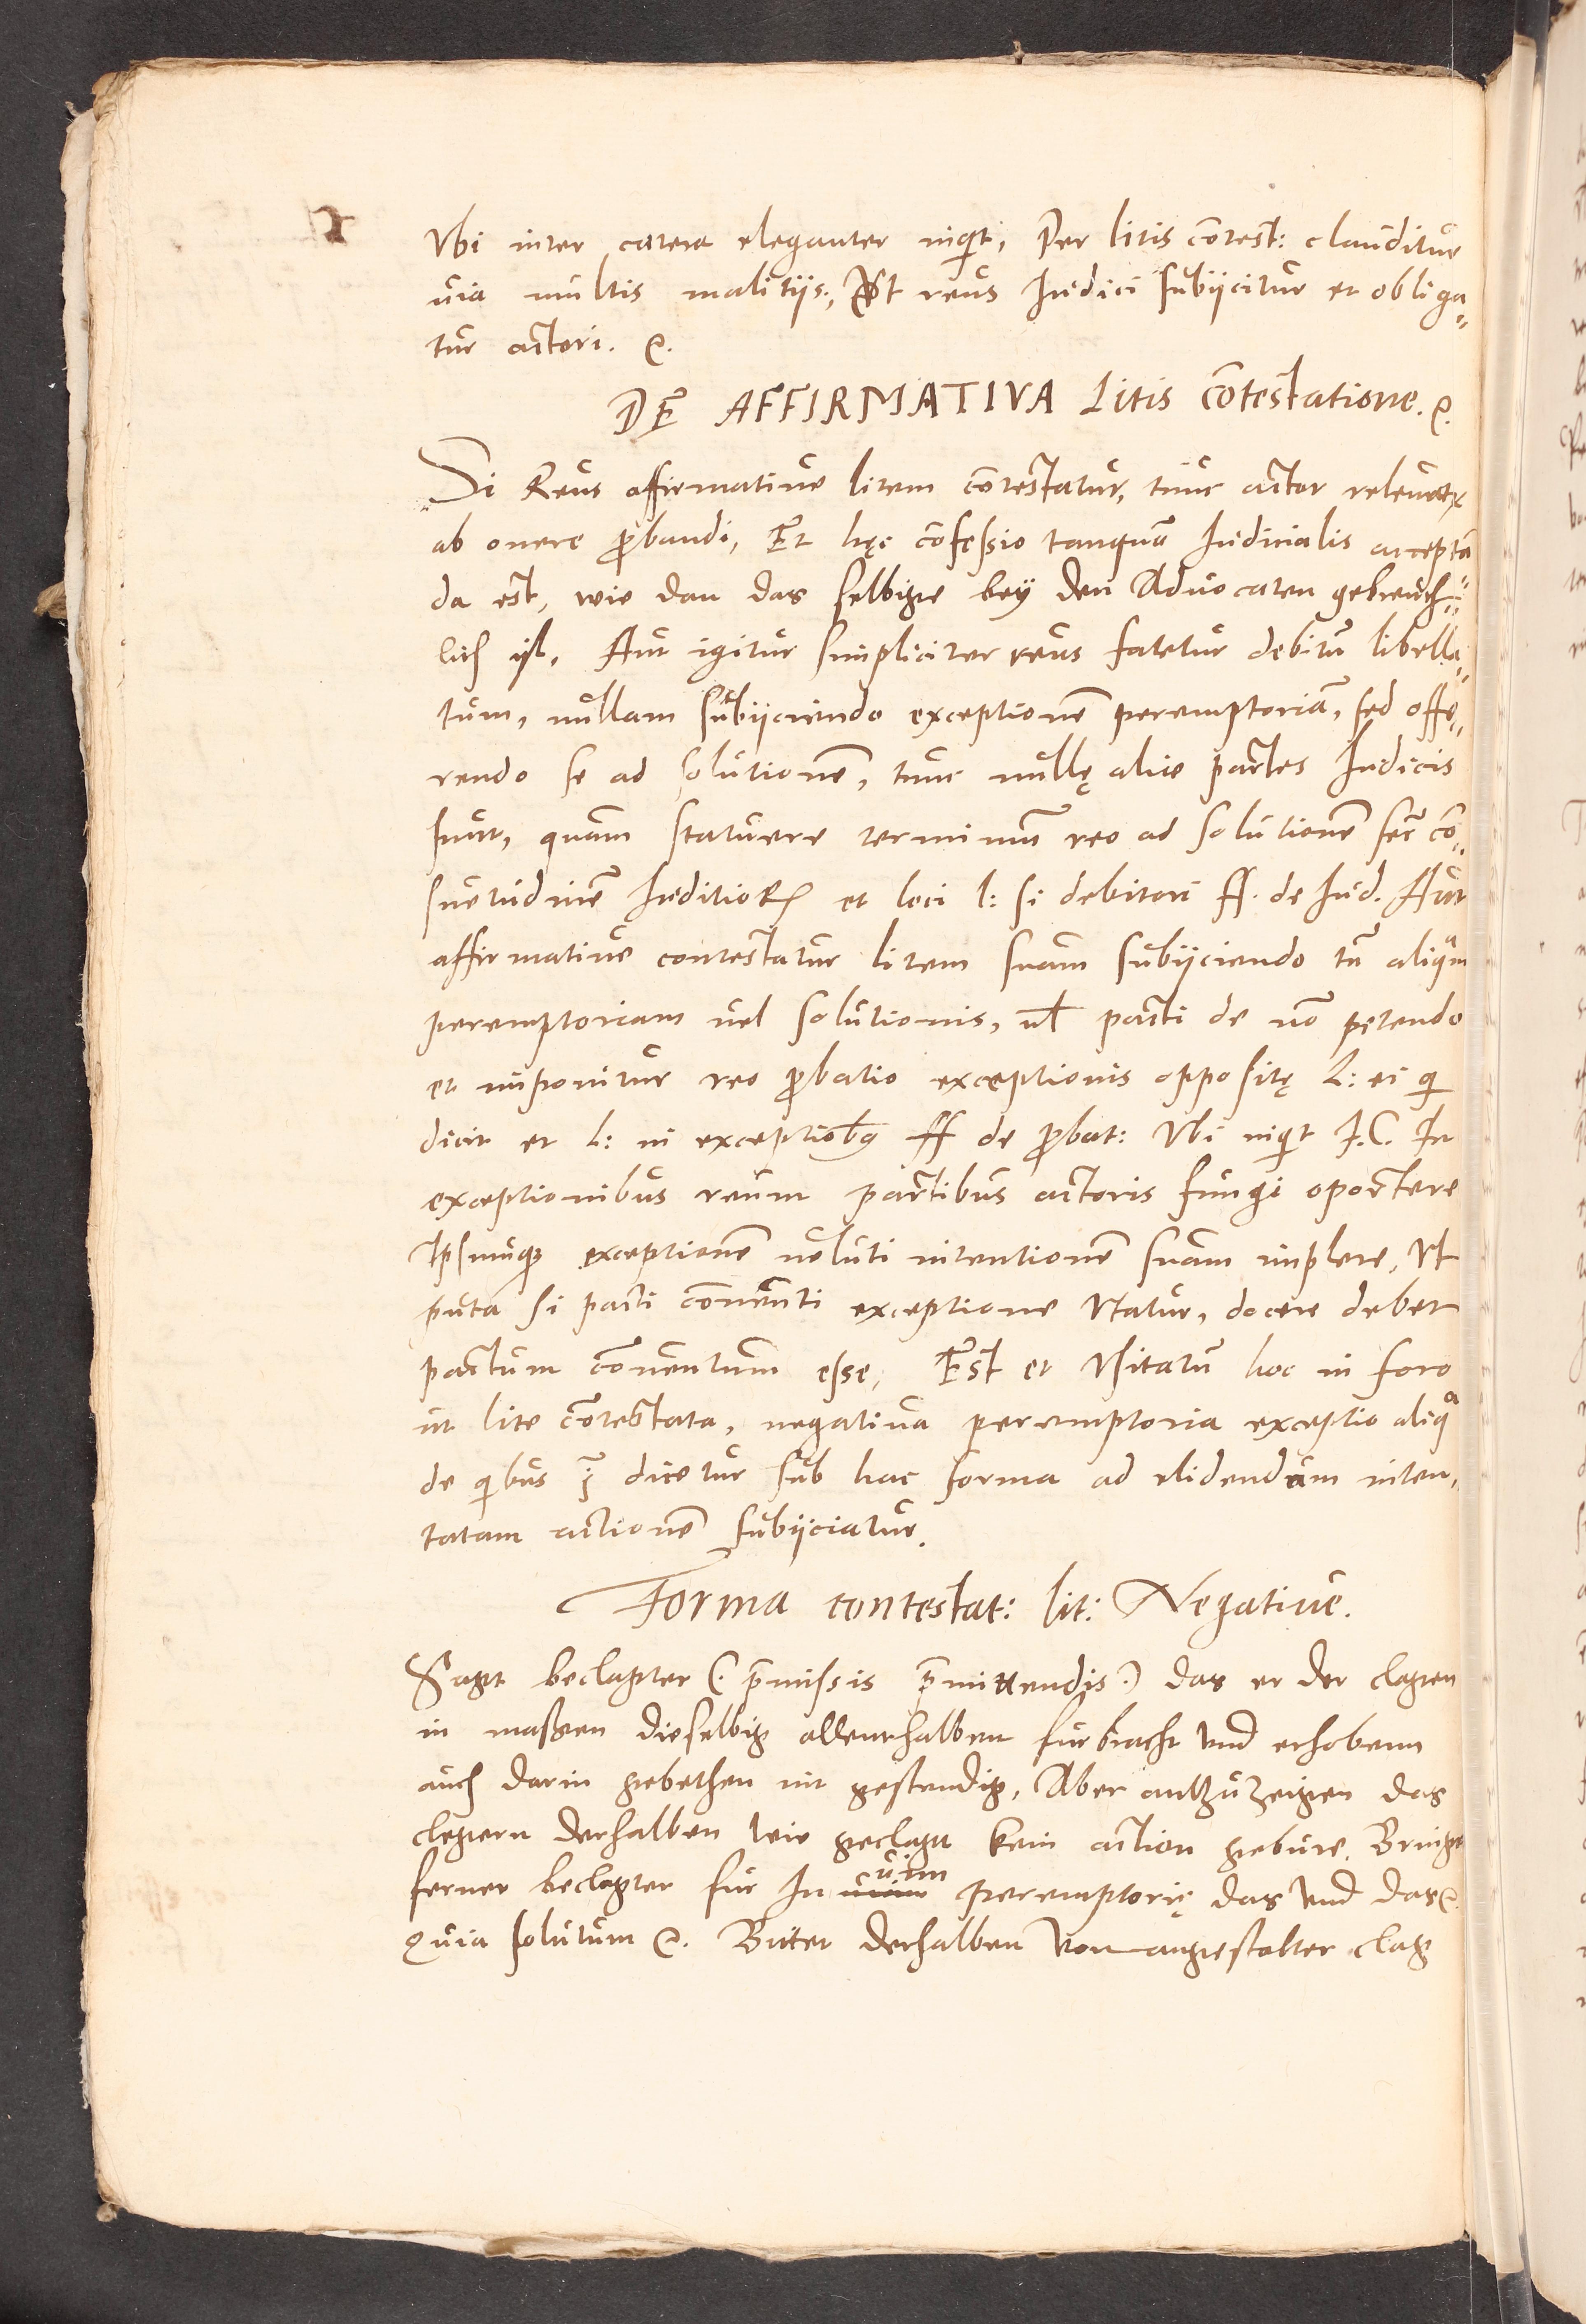 Vbi inter cætera eleganter inq̃t, Per litis cõtest: clauditur
uia multis malitijs, Et reus Iudici subijcitur et obliga„
tur actori. ꝛc.
DE AFFIRMATIVA Litis Cõtestatione. ꝛc.
Si Reus affirmatiue litem cõtestatur, tunc actor releuatur
ab onere ꝓbandi, Et hęc cõfessio tanquã Iudicialis acceptã
da est, wie dan das selbige bey den Aduocaten gebreuch„
lich ist. Aut igitur simpliciter reus fatetur debitũ libella„
tum, nullam subijciendo exceptionẽ peremptoriã, sed offe„
rendo se ad solutionẽ, tunc nullę aliæ partes Iudicis
sunt, quam statuere terminũ reo ad solutionẽ secũ cõ„
suetudinẽ Iuditioꝝ et loci l: si debitori ff. de Iud. Aut
affirmatiue contestatur litem suam subijciendo tñ aliqm
peremptoriam uel solutionis, ul pacti de nõ petendo
et imponitur reo ꝓbatio exceptionis oppositę L: ei q
dicit et l: in exceptiobꝯ ff de ꝓbat: Vbi inq̃t I.C. In
exceptionibus reum partibus actoris fungi oportere
Ipsumqꝫ exceptionẽ ueluti intentionẽ suam implere, Vt
puta si pacti cõuenti exceptione vtatur, docere debet
pactum cõuentum esse, Est et vsitatũ hoc in foro
ut lite cõtestata, negatiua peremptoria exceptio aliqa
de qibus dicetur sub hac forma ad elidendam inten„
tatam actionẽ subijciatur.
Forma contestat: lit: Negatiue.
Sagt beclagter (: p̃missis p̃mittendis :) das er der clagen
in massen dieselbig allenthalben furbracht vnd erhobenn
auch darin gebethen nit gestendig, Aber antzuzeigen das
clegern derhalben wie geclagt kein action gebure. Bringt
ferner beclagter fur In uim peremptorię das vnd das ꝛc.
Quia solutum ꝛc. Bittet derhalben von angestalter clag